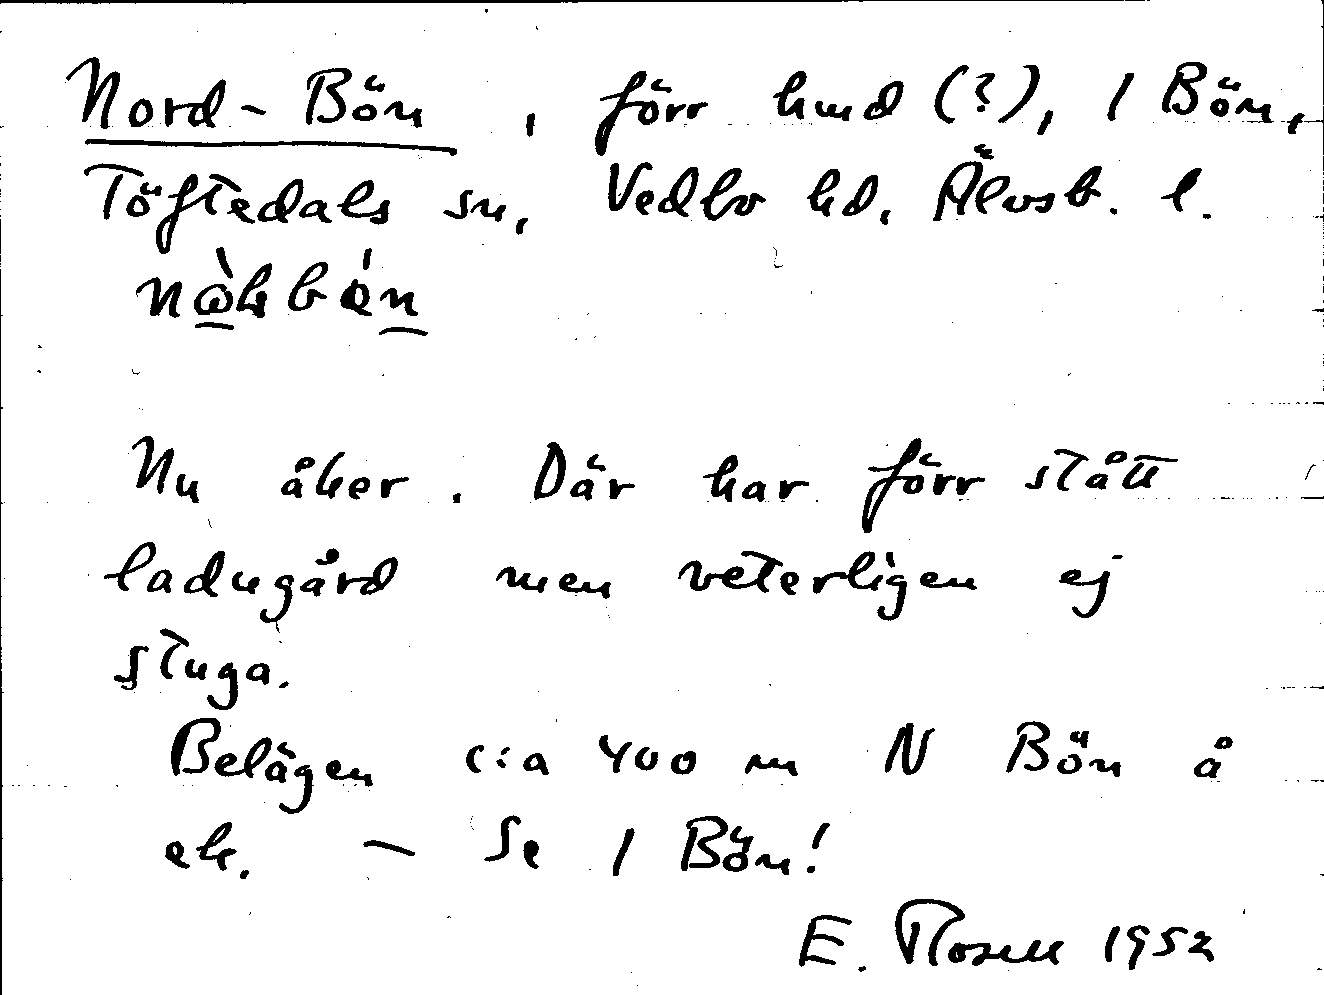 Nord-Bön, förr hmd (?), 1 Bön,
Töftedals sn, Vedbo hd, Älvsb. l.
Nu åker. Där har förr stått
ladugård men veterligen ej
stuga.
Belägen c:a 400 m N Bön å
ek. – Se 1 Bön!
E. Rosell 1952